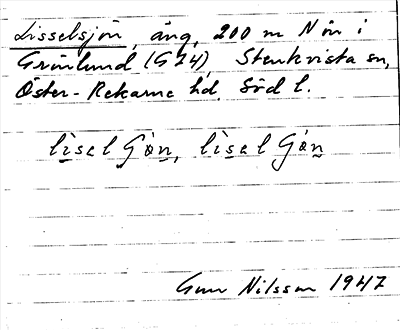 Lisselsjön, äng, 200 m N ön i
Grönlund (G24) Stenkvista sn,
Öster-Rekarne hd, Söd l.
lisel Gön, lisel Gön
Gun Nilsson 1947